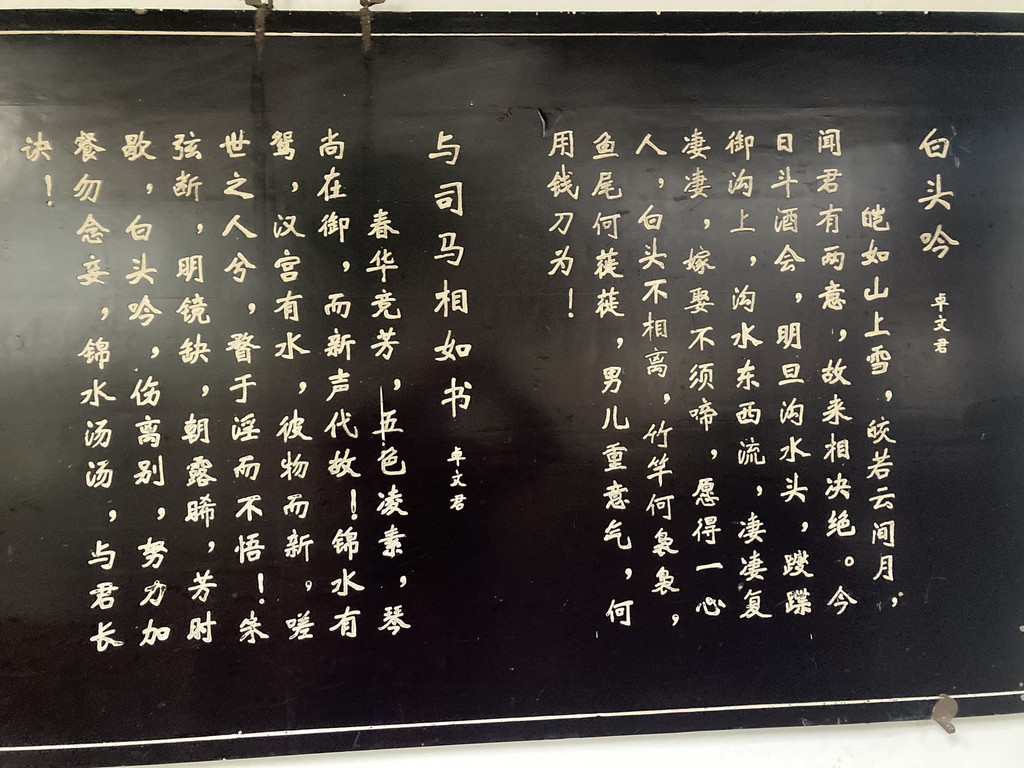 白头吟 卓文君
皑如山上雪，皎若云间月，
闻君有两意，故来相决绝。今
日斗酒会，明旦沟水头，躞蹀
御沟上，沟水东西流，凄凄复
凄凄，嫁娶不须啼，愿得一心
人，白头不相离，竹竿何袅袅，
鱼尾何蓰蓰，男儿重意气，何
用钱刀为！
与司马相如书 卓文君
春华竞芳，五色凌素，琴
尚在御，而新声代故！锦水有
鸳，汉宫有水，彼物而新。嗟
世之人兮，瞀于淫而不悟！朱
弦断，明镜缺，朝露晞，芳时
歇，白头吟，伤离别，努力加
餐勿念妾，锦水汤汤，与君长
诀！